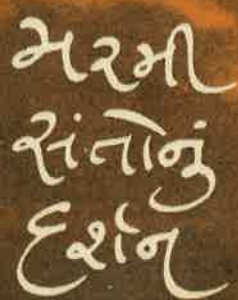 મરમી
સંતોનું
દર્શન